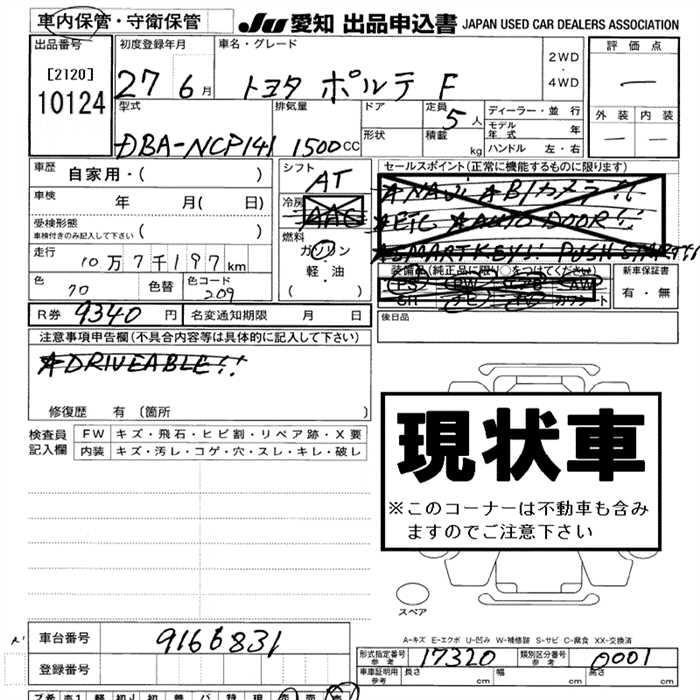 車内保管・守衛保管
JU 愛知 出品申込書 JAPAN USED CAR DEALERS ASSOCIATION
出品番号 初度登録年月 車名・グレード 2WD・4WD 評価点
[2120]
10124
27 6月 トヨタ ポルテ F
型式 排気量 ドア 定員 5人 ディーラー・並行 外装 内装
DBA-NCP141 1500CC 形状 積載 kg モデル年式 年
ハンドル 左・右
車歴 自家用・( )
シフト AT
セールスポイント(正常に機能するものに限ります)
★NAVi ★Bカメラ!!
★ETC ★AUTO DOOR!!
★SMARTKEY!! PUSH START!!
車検 年 月( 日)
冷房 AAC
受検形態
車検付きのみ記入して下さい ( )
燃料 ガソリン
軽・油
( )
走行 10万7千197km
装備品(純正品に限り○をつけてください) 新車保証書
PS PW エアB AW
SH ナビ TV カワシート
有・無
色 70 色替 色コード 209
後日品
R券 9340円 名変通知期限 月 日
注意事項申告欄(不具合内容等は具体的に記入して下さい)
★DRIVEABLE!!
修復歴 有 (箇所 )
検査員記入欄 FW キズ・飛石・ヒビ割・リペア跡・X要
内装 キズ・汚レ・コゲ・穴・スレ・キレ・破レ
現状車
※このコーナーは不動車も含み
ますのでご注意下さい
スペア
A-キズ E-エクボ U-凹み W-補修跡 S-サビ C-腐食 XX-交換済
車台番号 9166831
形式指定番号 参考 17320 類別区分番号 参考 0001
登録番号
車庫証明用 参考 長さ cm 幅 cm 高さ cm